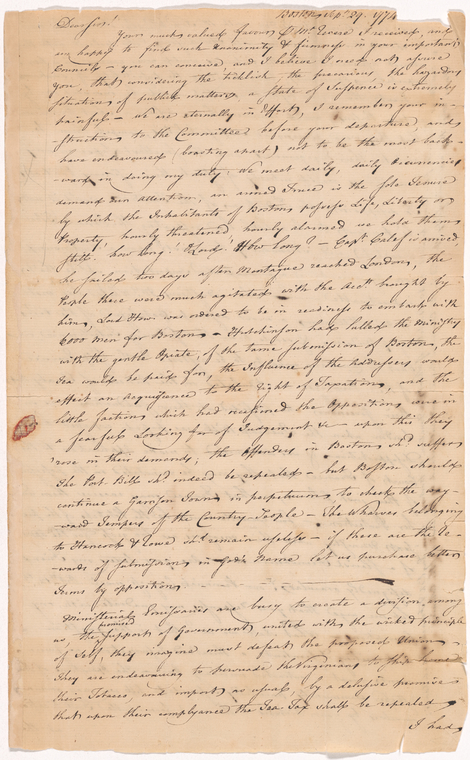 Boston Sepr. 29. 1774
Dear Sir!
Your much valued favour ⅌ Mr. Revere I received, and
am happy to find such Unanimity & firmness in your important
Councils — you can conceive, and I believe I need not assure
you, that considering the ticklish, the precarious, the hazardous
situation of publick matters, a state of Suspence is extremely
painfull — We are eternally in Efforts, I remember your in-
-structions to the Committee before your departure and
have endeavoured (boasting apart) not to be the most back-
-ward in doing my duty. We meet daily, daily Occurrences
demand our attention, an armed Truce is the sole Tenure
by which the Inhabitants of Boston possess Life, Liberty or
Property, hourly threatened, hourly alarmed we hold them
still. how long! Lord! How long? — Capt. Calef is arrived,
he sailed two days after Montague reached London, the
People there were much agitated with the Accots. brought by
him, Lord Howe was ordered to be in readiness to embark with
6000 Men for Boston — Hutchinson had lulled the Ministry
with the gentle Opiate, of the tame submission of Boston, the
Tea would be paid for, the Influence of the Addressers would
effect an Acquiescence to the Right of Taxation, and the
little factions which had occasioned the Opposition were in
a fearfull Looking for of Judgement &c — upon this they
rose in their demands, the offenders in Boston shd. suffer
The Port Bill shd. indeed be repealed — but Boston should
continue a Garrison Town in perpetuum to check the way-
-ward Tempers of the Country-People — The Wharves belonging
to Hancock & Rowe shd. remain useless — if these are the Re-
-wards of submission, in God's Name let us purchase better
Terms by opposition.
Ministerial Emissaries are busy to create a division among
us, the promised support of Government, united with the wicked principle
of Self, they imagine must defeat the proposed Union
They are endeavouring to persuade the Virginians to ship home
their Tobacco, and import as usual, by a delusive promise
that upon their complyance the Tea Tax shall be repealed
I had